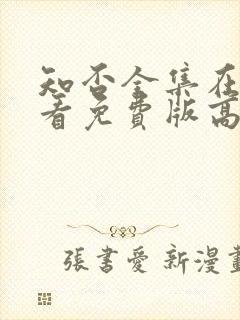 知否全集在
看免費版高
張書愛 新漫畫